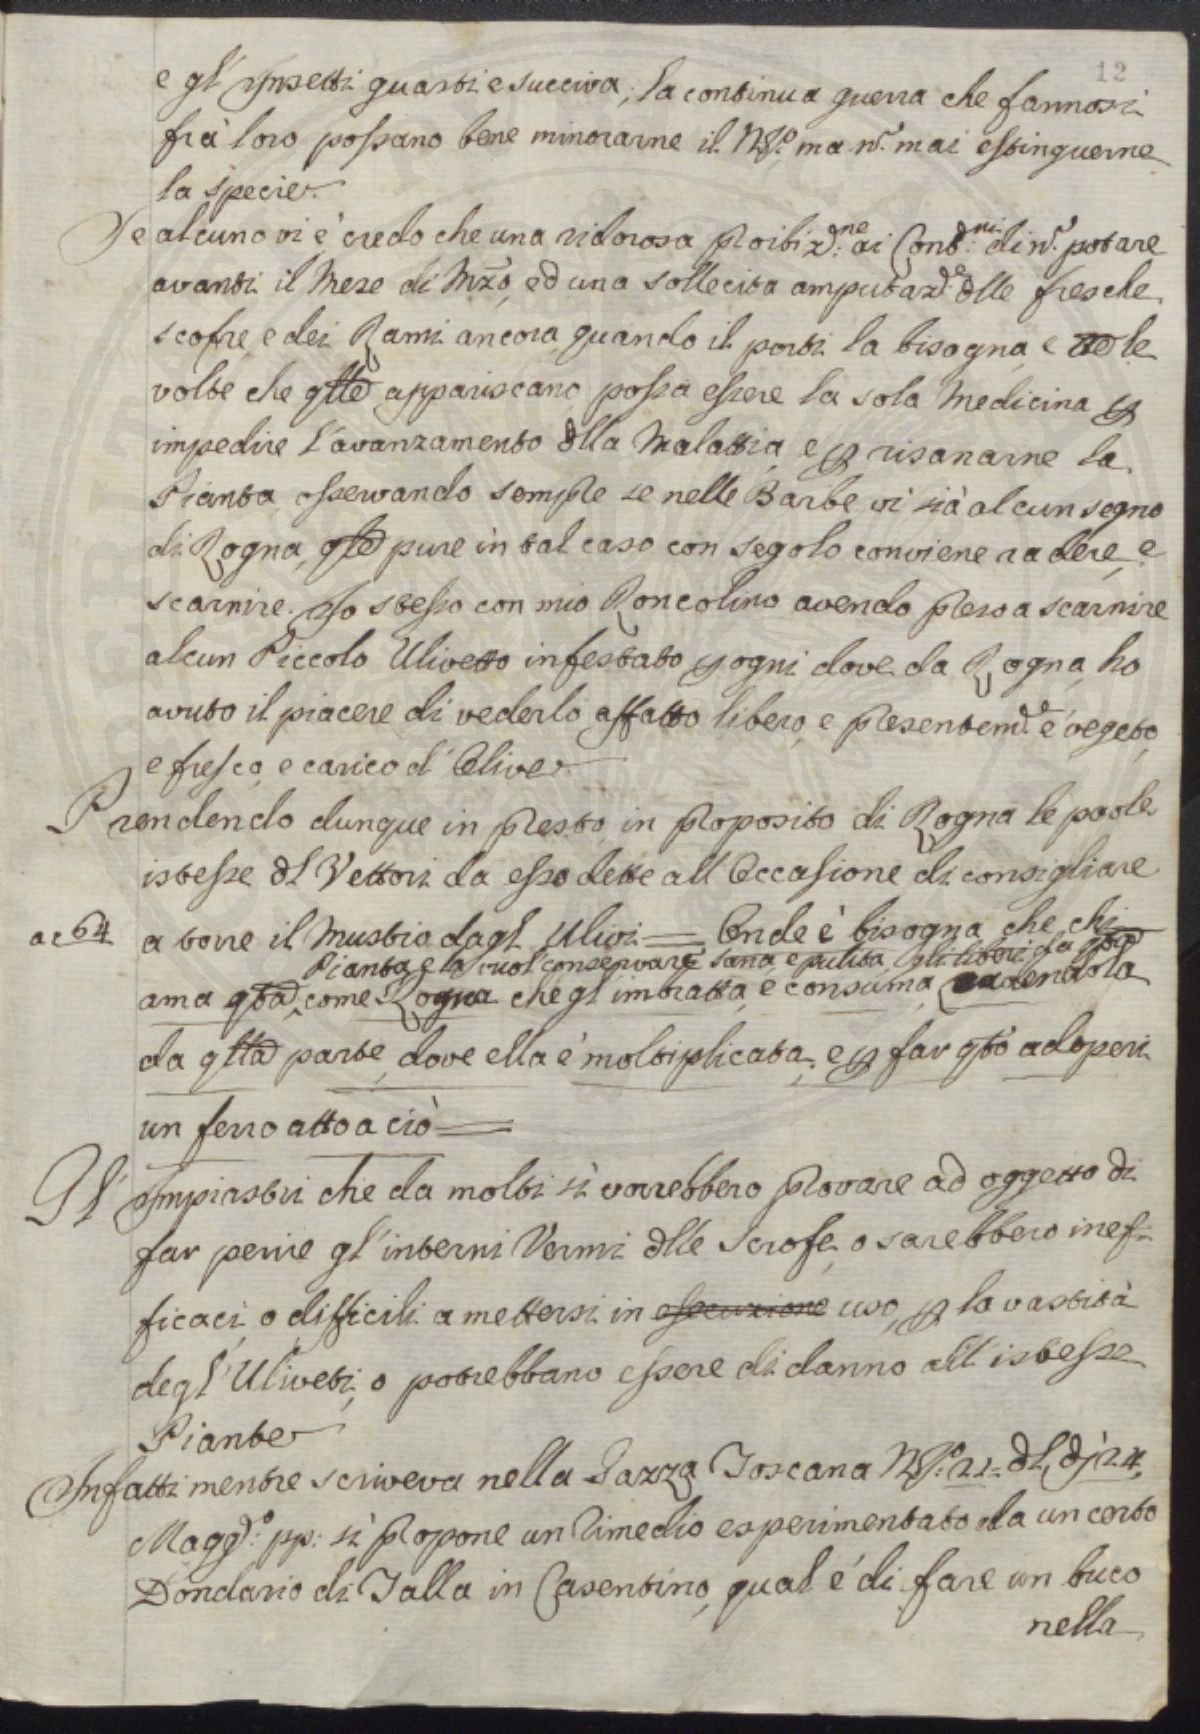 12
e gl' Insetti guasti e succiva; la continua guerra che fannosi
frà loro possano bene minorarne il N.ro, ma n.' mai estinguerne
la specie.
Se alcuno vi è credo che una ridorosa proibiz.ne ai Cont.ni di n.' potare
avanti il Mese di Mzo, ed una sollecita amputaz.e dlle fresche
scofre, e dei Rami ancora quando il porti la bisogna, e tte le
volte che qlle appariscano possa essere la sola Medicina p
impedire l'avanzamento dlla Malattia, e p risanarne la
Pianta, osservando sempre se nelle Barbe vi sià alcun segno
di Rogna, qle pure in tal caso con segolo conviene radere, e
scarnire. Io stesso con mio Roncolino avendo preso a scarnire
alcun Piccolo Ulivetto infestato p ogni dove da Rogna, ho
avuto il piacere di vederlo affatto libero, e presentem.e è vegeto,
e fresco, e carico d' Olive.
Prendendo dunque in presto, in proposito di Rogna le parole
istesse dl Vettori da esso dette all' Occasione di consigliare
ac 64
a torre il Mustio dagl' Ulivi = Onde è bisogna, che chi
Pianta, e la vuol conservare sana, e pulita gli liberi da qta
ama qta, come Rogna che gl' imbratta, e consuma, radendola
da qlla parte, dove ella è moltiplicata; e p far qto adoperi
un ferro atto a ciò =
Gl' Impiastri che da molti si vorrebbero provare ad oggetto di
far perire gl' interni Vermi dlle Scrofe, o sarebbero inef-
ficaci, o difficili a mettersi in esecuzione uso, p la vastità
degl' Uliveti, o potrebbano essere di danno all' istesse
Piante.
Infatti mentre scriveva nella Gazza Toscana N.ro 21= dl dì 24,
Magg.o pp: si propone un Rimedio esperimentato da un certo
Dondario di Talla in Casentino, qual' è di fare un buco
nella